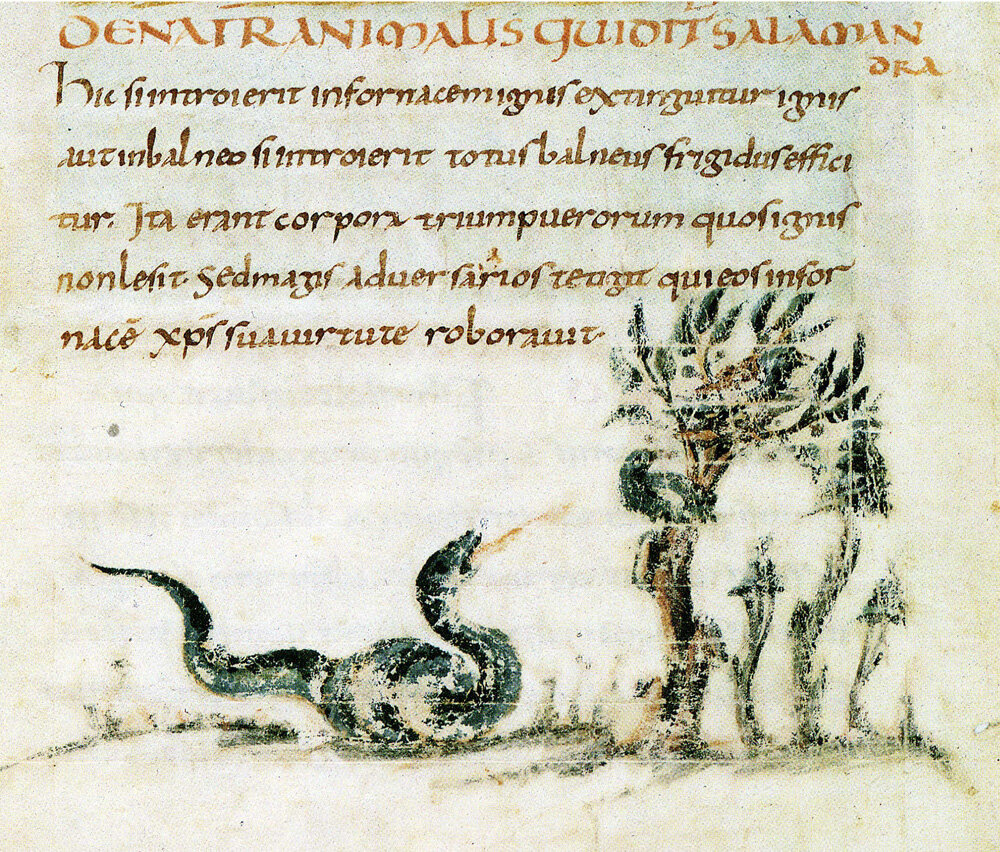 DE NATR ANIMALIS QUI DIT̄ SALAMAN
DRA
Hic si introierit in fornacem ignis extinguitur ignis
aut in balneo si introierit totus balneus frigidus effici
tur. Ita erant corpora trium puerorum quos ignis
non lesit. Sed magis aduersarios tetigit qui eos in for
nacē xp̄s sua uirtute roborauit.